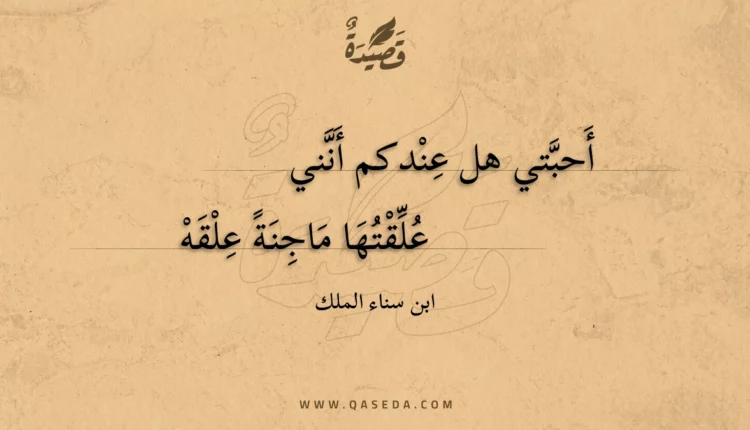 قَصِيْدَةٌ
أَحبَّتي هل عِنْدكم أَنَّني
عُلِّقْتُهَا مَاجِنَةً عِلْقَهْ
ابن سناء الملك
WWW.QASEDA.COM